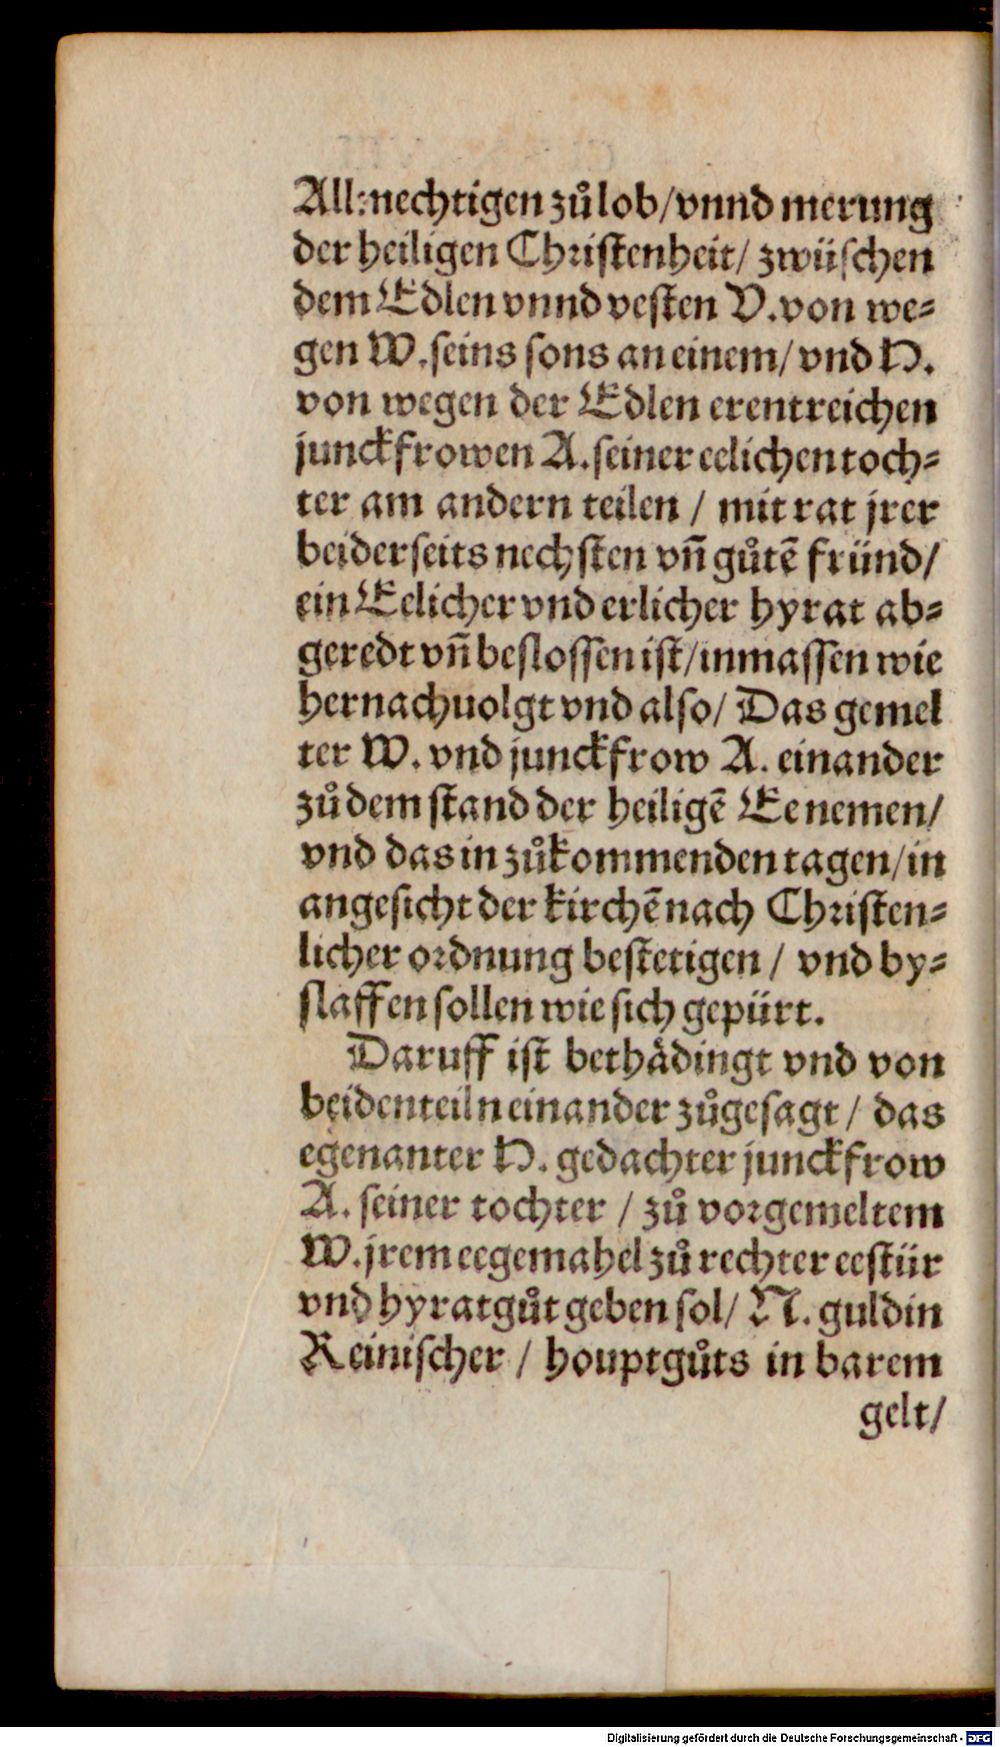 Allmechtigen zů lob/vnnd merung
der heiligen Christenheit/ zwüschen
dem Edlen vnnd vesten V. von we⸗
gen W. seins sons an einem/ vnd H.
von wegen der Edlen erentreichen
junckfrowen A. seiner eelichen toch⸗
ter am andern teilen / mit rat jrer
beiderseits nechsten vñ gůtẽ fründ/
ein Eelicher vnd erlicher hyrat ab⸗
geredt vñ beslossen ist/inmassen wie
hernachuolgt vnd also/ Das gemel
ter W. vnd junckfrow A. einander
zů dem stand der heiligẽ Ee nemen/
vnd das in zůkommenden tagen/in
angesicht der kirchẽ nach Christen⸗
licher ordnung bestetigen / vnd by⸗
slaffen sollen wie sich gepürt.
Daruff ist bethådingt vnd von
beiden teiln einander zůgesagt / das
egenanter H. gedachter junckfrow
A. seiner tochter / zů vorgemeltem
W. jrem eegemahel zů rechter eestür
vnd hyratgůt geben sol/ N. guldin
Reinischer / houptgůts in barem
gelt/
Digitalisierung gefördert durch die Deutsche Forschungsgemeinschaft - DFG